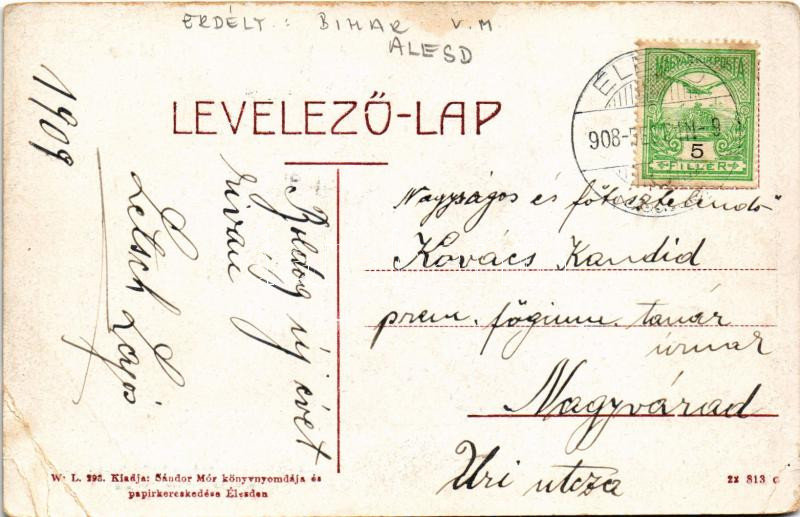 ERDÉLY: BIHAR V.M.
ALESD
LEVELEZŐ-LAP
MAGYAR KIR. POSTA
5
FILLÉR
908
1909
Boldog új évet
kiván
Letsch Lajos
Nagyságos és főtisztelendő
Kovács Kandid
prem. főgimn. tanár
úrnak
Nagyvárad
Uri utcza
W. L. 293. Kiadja: Sándor Mór könyvnyomdája és
papirkereskedése Élesden
22 813 c